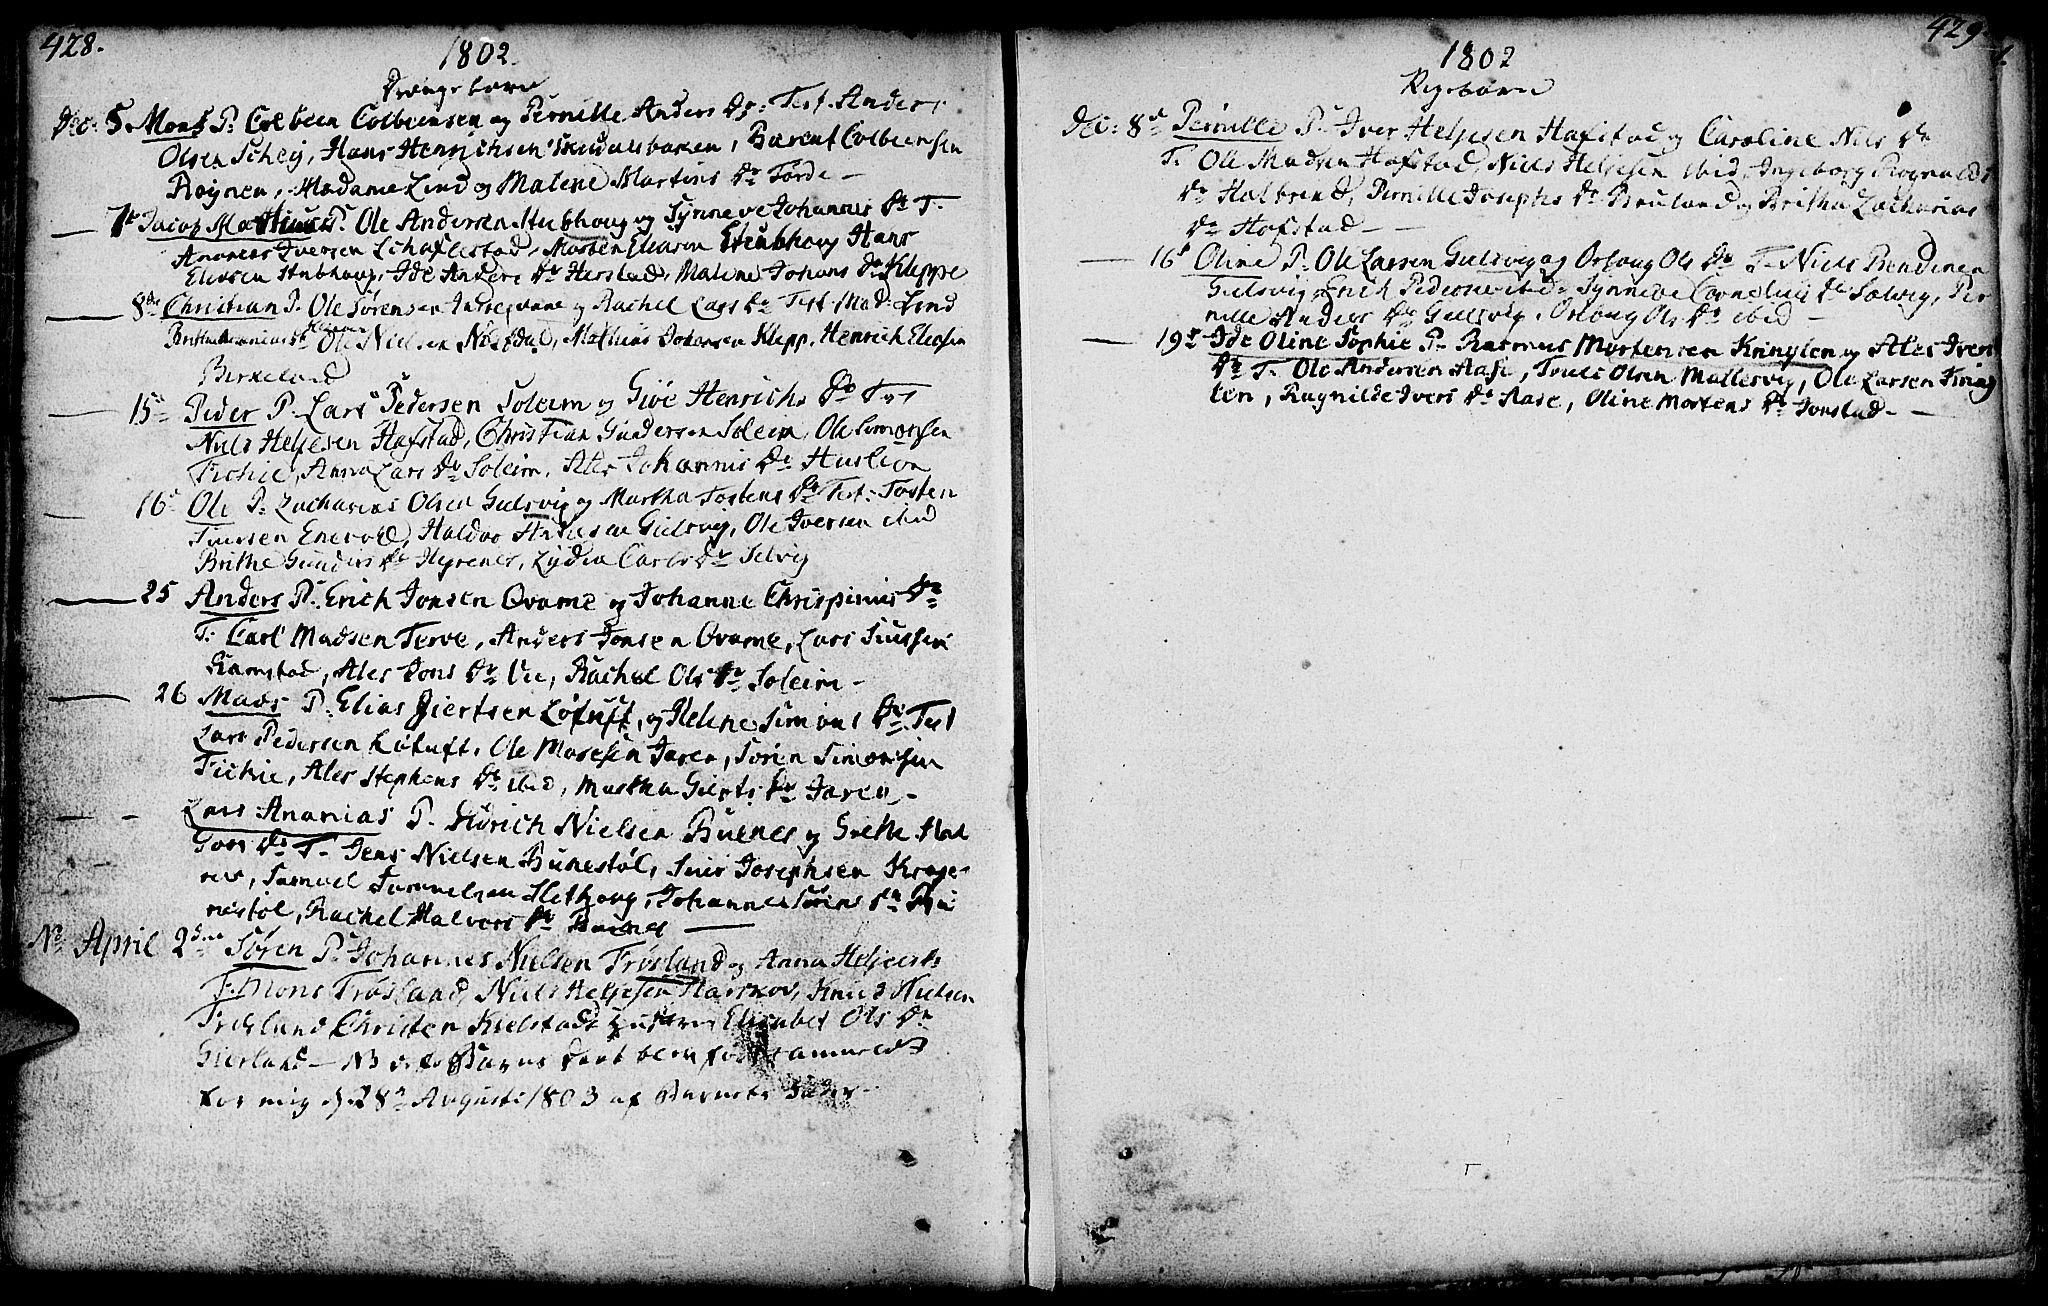 428.
1802.
Drengebørn
Dec: 5. Mons P. Colbeen Colbeensen og Pernille Anders Dr: Test. Anders
Olsen Scheij, Hans Henrichsen Skudalsbaken, Barent Colbeensen
Røijnen, Madame Lind og Malene Martins Dr Førde
7de Jacob Mathias P. Ole Andersen Stubhoug og Synneve Johannis Dr T.
Andreas Iversen Schaflestad, Morten Eliasen Stubhoug Hans
Eliasen Stubhoug, Ide Anders Dr Herstad, Malene Johans Dr Kleppe
8de Christian P. Ole Sørensen Indrequame og Rachel Lars Dr Test. Mad: Lind
Ole Nielsen Nøstdal, Mathias Johansen Klepp, Henrich Eliasen
Birkeland
15de Peder P. Lars Pedersen Soleim og Giøe Henrichs Dr Test
Niels Helgesen Hafstad, Christian Gundersen Soleim, Ole Simonsen
Fichie, Anna Lars Dr Soleim, Ales Johannis Dr
16de Ole P. Zacharias Olsen Gulsvig og Martha Tostens Dr Test: Tosten
Enevold, Haldor Gielsvig, Ole Iversen ibid
Brithe Gunders Dr Hyrenes, Lydia Carls Dr Selvig
25 Anders P. Erich Jonsen Qvame og Johanne Chrispinus Dr
T. Carl Madsen Terve, Anders Jonsen Qvame, Lars
Ramstad, Ales Jons Dr Vie, Rachel Ols Dr Soleim
26 Mads P. Elias Giertsen Løtuft, og Helene Simons Dr Test
Lars Pedersen Løtuft, Ole Mosesen Jaren, Søren Simonsen
Fichie, Ales Stephens Dr ibid, Martha Gierts Dr Jaren
Lars Ananias P. Didrich Nielsen Buenes og Grethe Hal
vors Dr T. Jens Nielsen Bunestøl, Siur Josephsen Krage-
næs, Samuel Samuelsen Slethoug, Johanne Sørens Dr Bu
nestøl, Rachel Halvors Dr Buenes
NB April 2den Søren P. Johannes Nielsen Frøsland og Anna Helgers Dr
T. Mons Frøsland, Niels Helgesen Knud Nielsen
Frøsland Christen Kielstads Hustrue Elisabet Ols Dr
Gierland NB dette Barns Daab blev først anmeldt
for mig d. 28de Augusti 1803 af Barnets Fader
429
1802
Pigebørn
Dec: 8de Pernille P. Iver Helgesen Hafstad og Caroline Nils Dr
T. Ole Madsen Hafstad, Niels Helgesen ibid, Ingeborg Rognalds
Dr Halbrend, Pernille Josephs Dr Bruland og Britha Zacharias
Dr Hafstad
16de Oline P. Ole Larsen Gulsvig og Orloug Ols Dr T. Niels Bendixen
Gulsvig, Erich Pedersen ibid, Synneve Cornelius Dr Solvig, Per
nille Anders Dr Gulsvig, Orloug Ols Dr ibid
19de Ide Oline Sophie P. Rasmus Mortensen Kringlen og Ales Ivers
Dr T. Ole Andersen Aase, Truls Olsen Møllervig, Ole Larsen Kring
len, Ragnilde Ivers Dr Aase, Oline Mortens Dr Jonstad